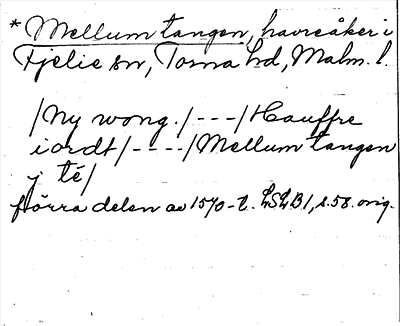 * Mellum tangen, havreåker i
Fjelie sn, Torna hd, Malm. l.
/Ny wong./---/Hauffre
iordt/----/Mellum tangen
j té/
förra delen av 1570-t. LSLB1, s.58. orig.